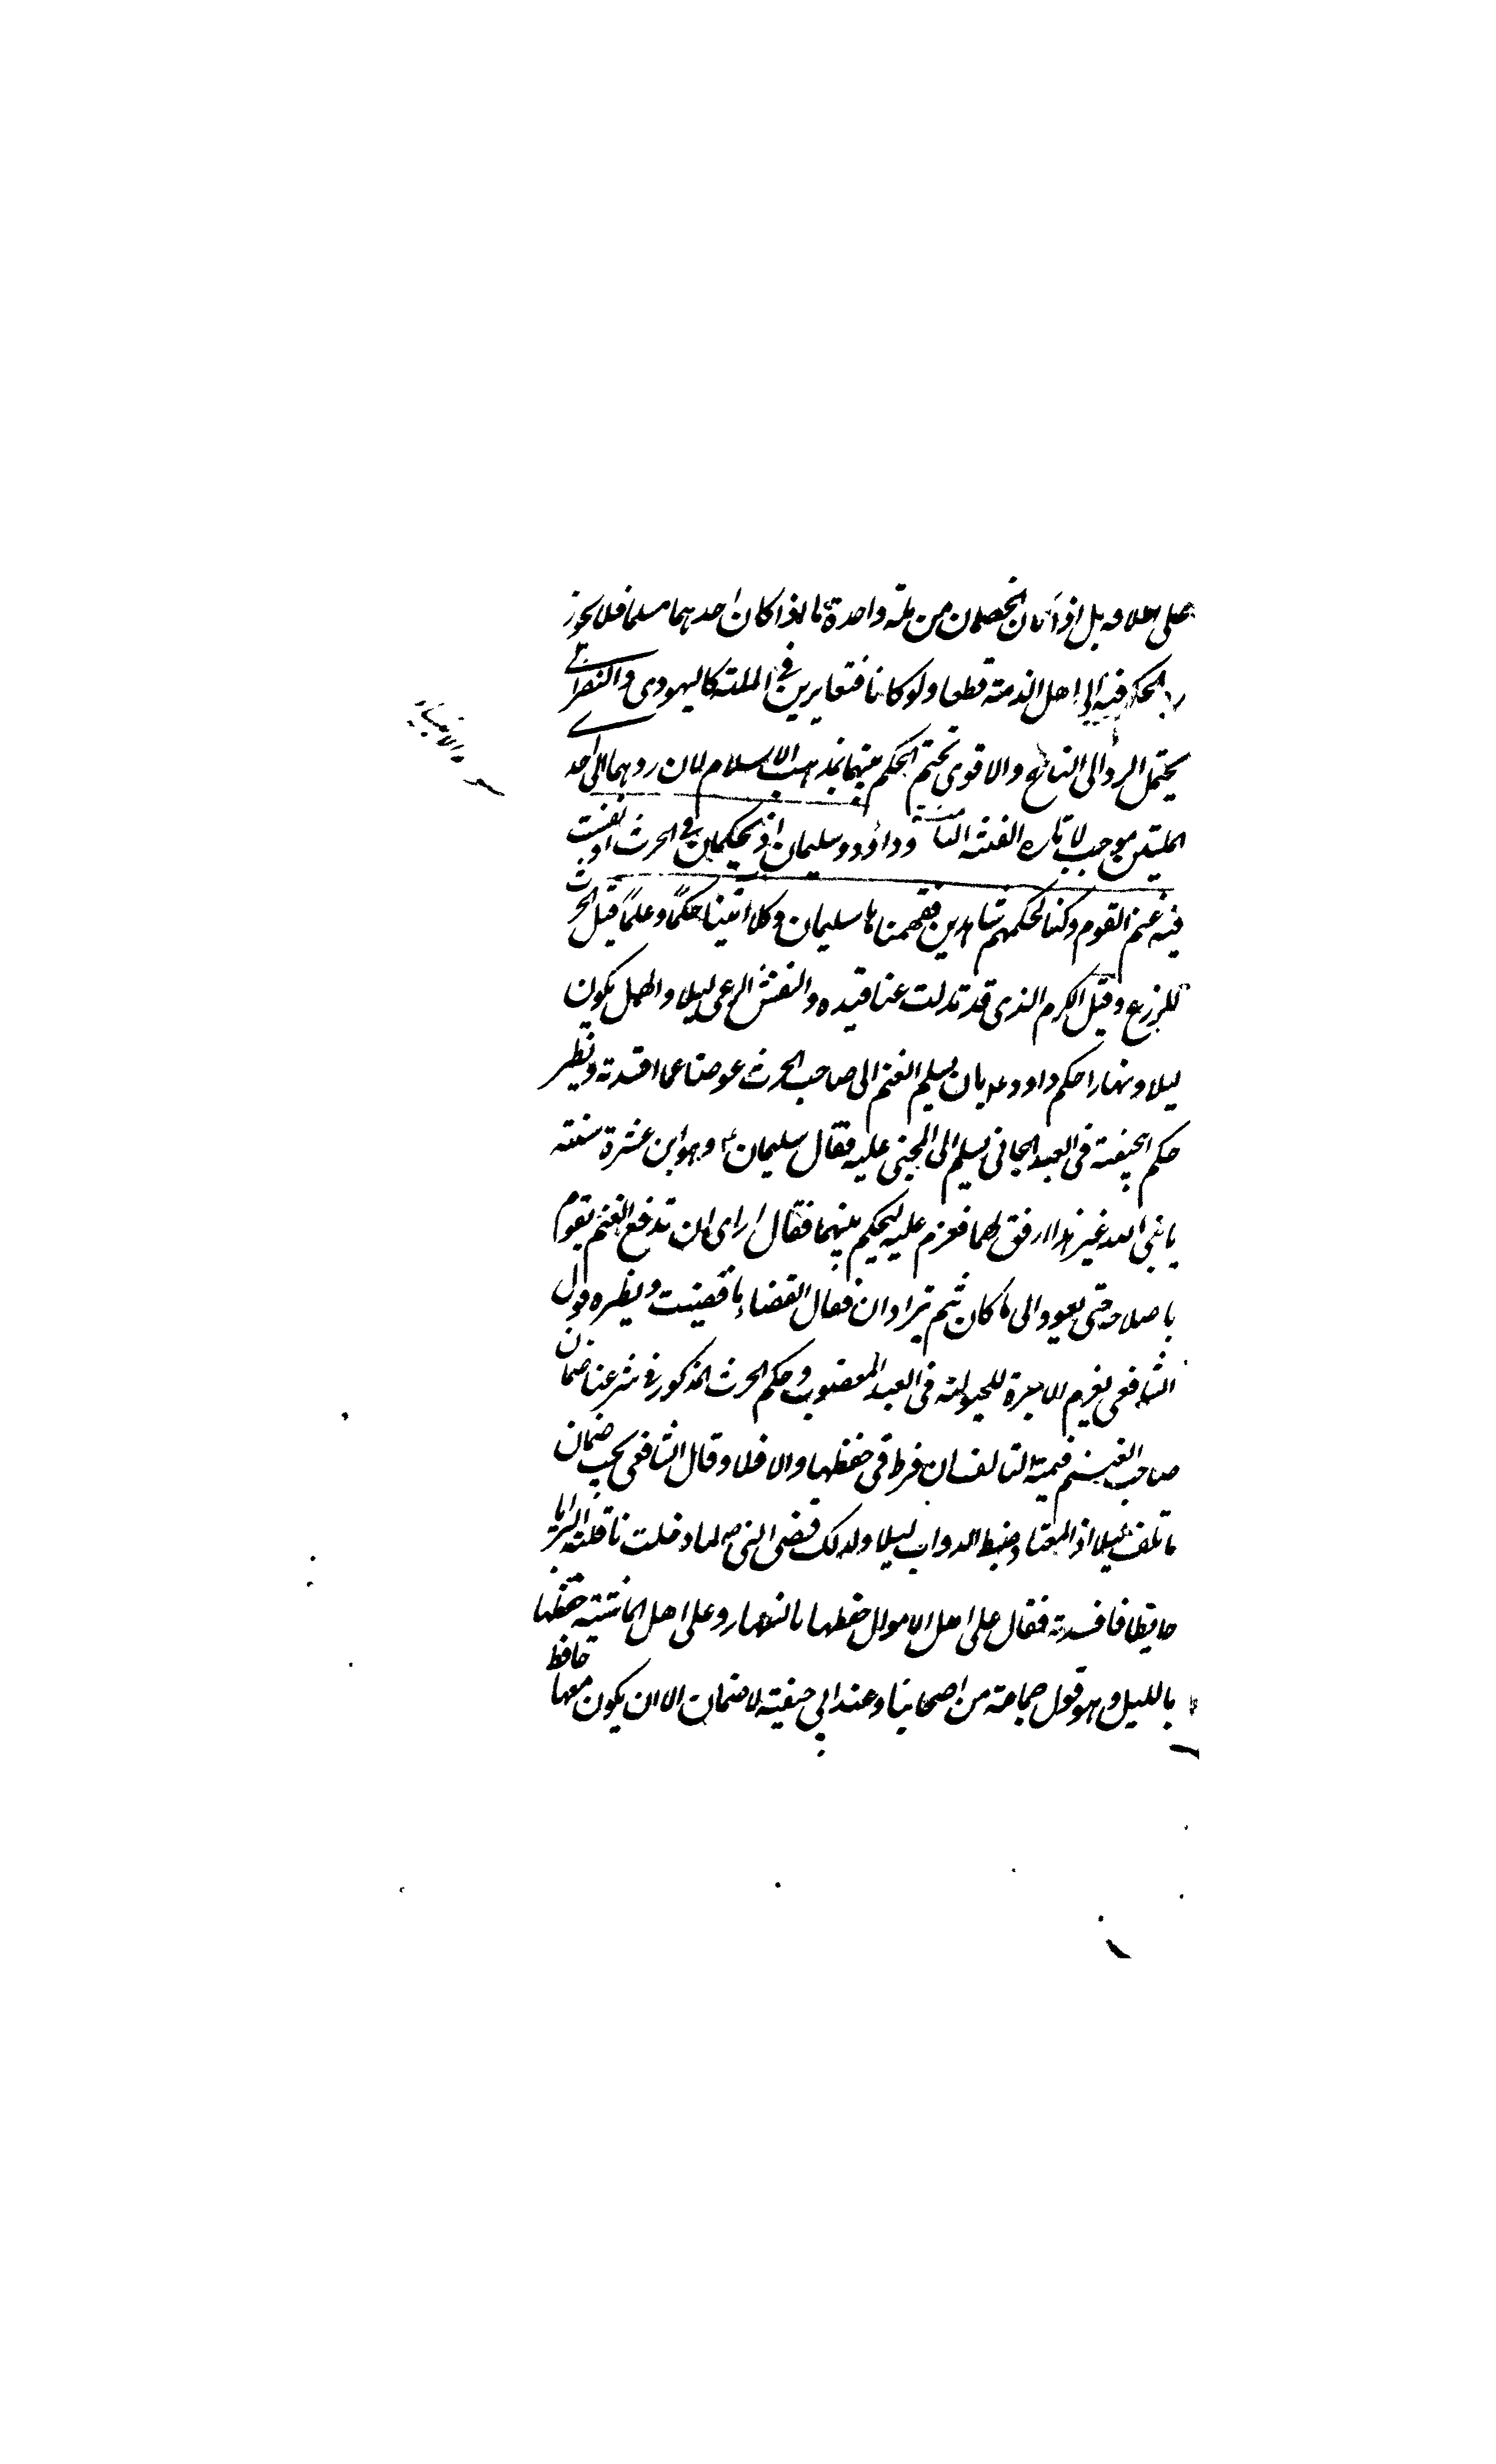 على اطلاقه بل اذا كان الخصمان من ملة واحدة اما اذا كان احدهما مسلما فلا يجوز
رد الحكم فيه الى اهل الذمة قطعا ولو كانا متغايرين في الملة كاليهودى والنصرانى
يحتمل الرد الى الناسخ والاقوى تحتم الحكم بينهما بمذهب الاسلام لان ردهما الى احد
الملتين موجب لاثارة الفتنة الثامنة وداود وسليمان اذ يحكمان فى الحرث اذ نفشت
فيه غنم القوم وكنا لحكمهم شاهدين ففهمناها سليمان وكلا اتينا حكمًا وعلمًا قيل الحرث
للزرع وقيل الكرم الذى قد تدلت عناقيده والنفش الرعى ليلا والهمل يكون
ليلا ونهارا حكم داود ع بان يسلم الغنم الى صاحب الحرث عوضا عما افسدته ونظير
حكم ابيحنيفة فى العبد الجانى يسلم الى المجنى عليه فقال سليمان ع وهو ابن عشرة سنته
يا نبى الله غير هذا ارفق لهما فعزم عليه ليحكم بينهما فقال ارى ان تدفع الغنم يقوم
باصلاحه حتى يعود الى ما كان ثم يترادان فقال القضاء ما قضيت ونظيره قول
الشافعى بغرم الاجرة للحيولة فى العبد المغصوب وحكم الحرث المذكور فى شرعنا ضمان
صاحب الغنم قيمة التالف ان فرط فى حفظها والا فلا وقال الشافعى يجب ضمان
ما تلف ليلا اذ المعتاد ضبط الدواب ليلا ولذلك قضى النبى ص لما دخلت ناقة البراء
حائطا فافسدته فقال على اهل الاموال حفظها بالنهار وعلى اهل الماشية حفظها
بالليل وهو قول جماعة من اصحابنا وعند ابي حنيفة لا ضمان الا ان يكون معها حافظ
والانبياء